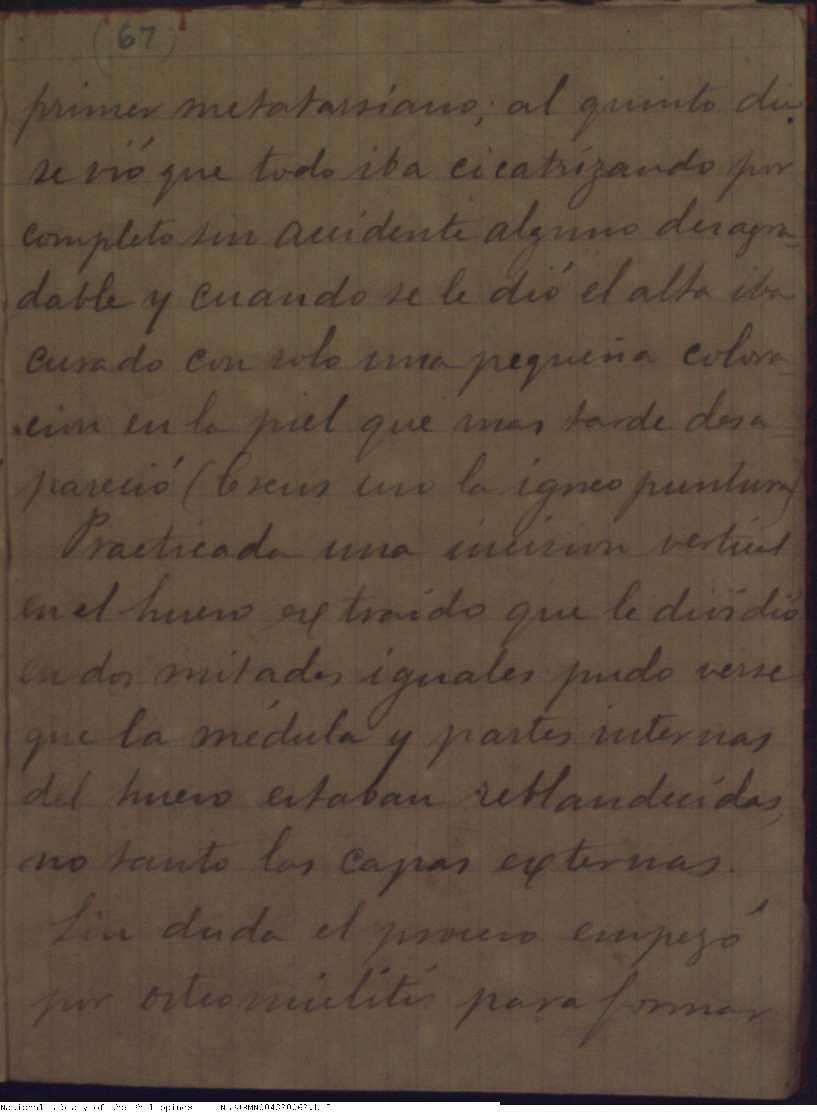 (67)
primer metatarsiano; al quinto dia
se vió que todo iba cicatrizando por
completo sin accidente alguno desagra-
dable y cuando se le dió el alta iba
curado con solo una pequeña colora-
cion en la piel que mas tarde desa-
pareció (la ígneo puntura)
Practicada una incision vertical
en el hueso extraído que le dividió
en dos mitades iguales pudo verse
que la médula y partes internas
del hueso estaban reblandecidas,
no tanto las capas externas.
Sin duda el proceso empezó
por osteomielitis para formar
National Library of the Philippines